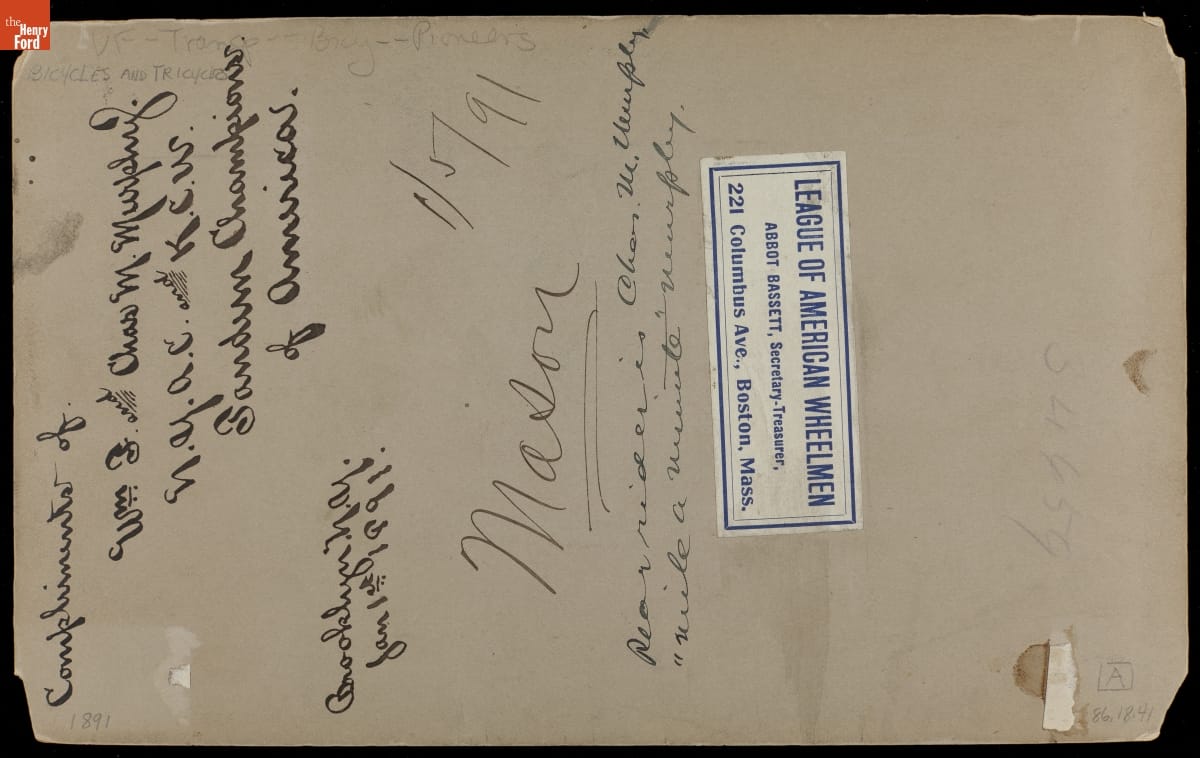 the
Henry
Ford
VF--Transp--Bicy--Pioneers
BICYCLES AND TRICYCLES
Compliments of
Wm. F. and Chas M. Murphy.
N.Y.A.C. and K.C.W.
Tandem Champions
of America.
Brooklyn N.Y.
Jan 1st, 1891.
1/5/91
Mason
Rear rider is Chas. M. Murphy
"mile a minute" Murphy.
LEAGUE OF AMERICAN WHEELMEN
ABBOT BASSETT, Secretary-Treasurer,
221 Columbus Ave., Boston, Mass.
34659
1891
A
86.18.41